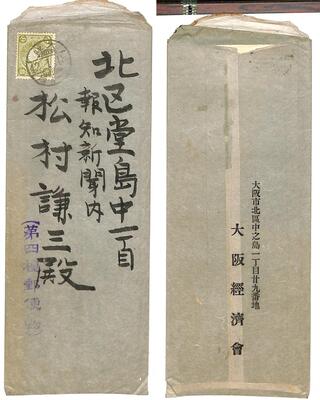 北区堂島中一丁目
報知新聞内
松村謙三殿
(第四種郵便物)
大阪市北區中之島一丁目廿九番地
大阪經濟會